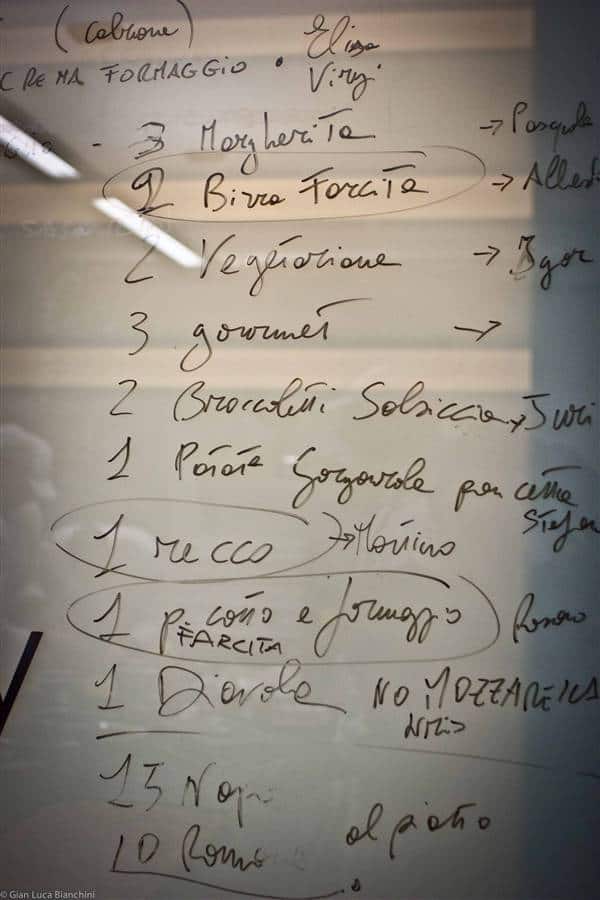 (Calzone) Elisa
CREMA FORMAGGIO • Virgi
- 3 Margherita → Pasquale
2 Birra Farcita →
2 Vegetariane → Igor
3 gourmet →
2 Broccoletti Salsiccia → Juri
1 Patate Gorgonzola pancetta
Stefan
1 recco → Martino
1 p. cotto e formaggio
FARCITA
1 Diavola NO MOZZARELLA
15 Nap
10 Roma al piatto
© Gian Luca Bianchini